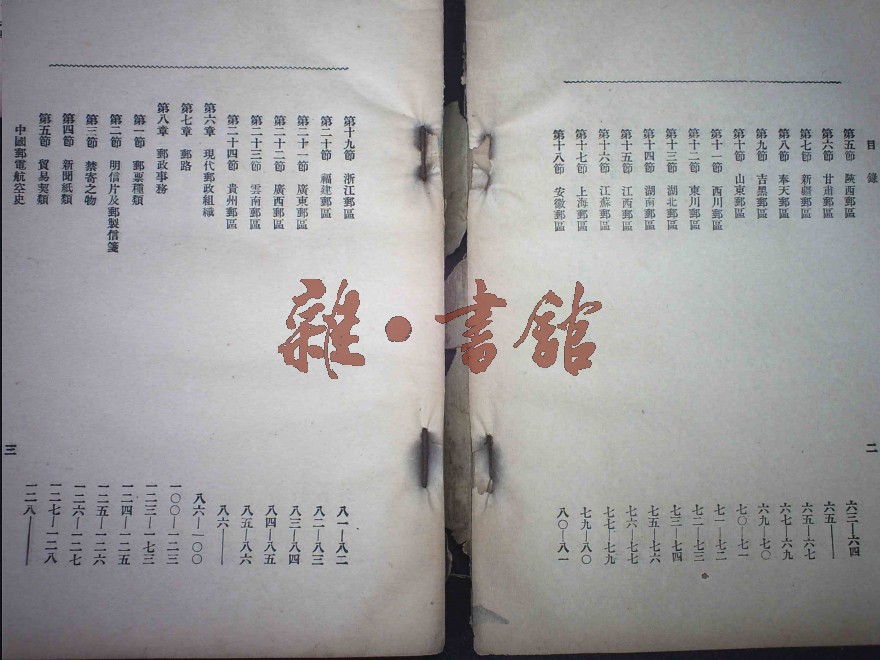 目錄
第五節 陝西郵區 六三—六四
第六節 甘肅郵區 六五——
第七節 新疆郵區 六五—六七
第八節 奉天郵區 六七—六九
第九節 吉黑郵區 六九—七〇
第十節 山東郵區 七〇—七一
第十一節 西川郵區 七一—七二
第十二節 東川郵區 七二—七三
第十三節 湖北郵區 七三—七四
第十四節 湖南郵區 七五—七六
第十五節 江西郵區 七六—七七
第十六節 江蘇郵區 七七—七九
第十七節 上海郵區 七九—八〇
第十八節 安徽郵區 八〇—八一
二
第十九節 浙江郵區 八一—八二
第二十節 福建郵區 八二—八三
第二十一節 廣東郵區 八三—八四
第二十二節 廣西郵區 八四—八五
第二十三節 雲南郵區 八五—八六
第二十四節 貴州郵區 八六——
第六章 現代郵政組織 八六—一〇〇
第七章 郵路 一〇〇—一二三
第八章 郵政事務 一二三—一七三
第一節 郵票種類 一二四—一二五
第二節 明信片及郵製信箋 一二五—一二六
第三節 禁寄之物 一二六—一二七
第四節 新聞紙類 一二七—一二八
第五節 貿易契類 一二八——
中國郵電航空史
三
雜·書館